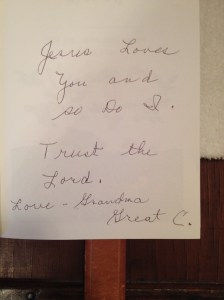 Jesus Loves
You and
so Do I.
Trust the
Lord.
Love - Grandma
Great C.